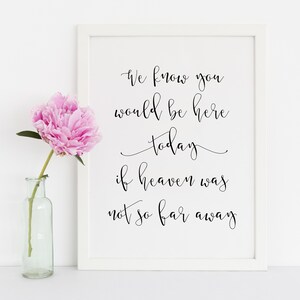 We know you
would be here
today
if heaven was
not so far away